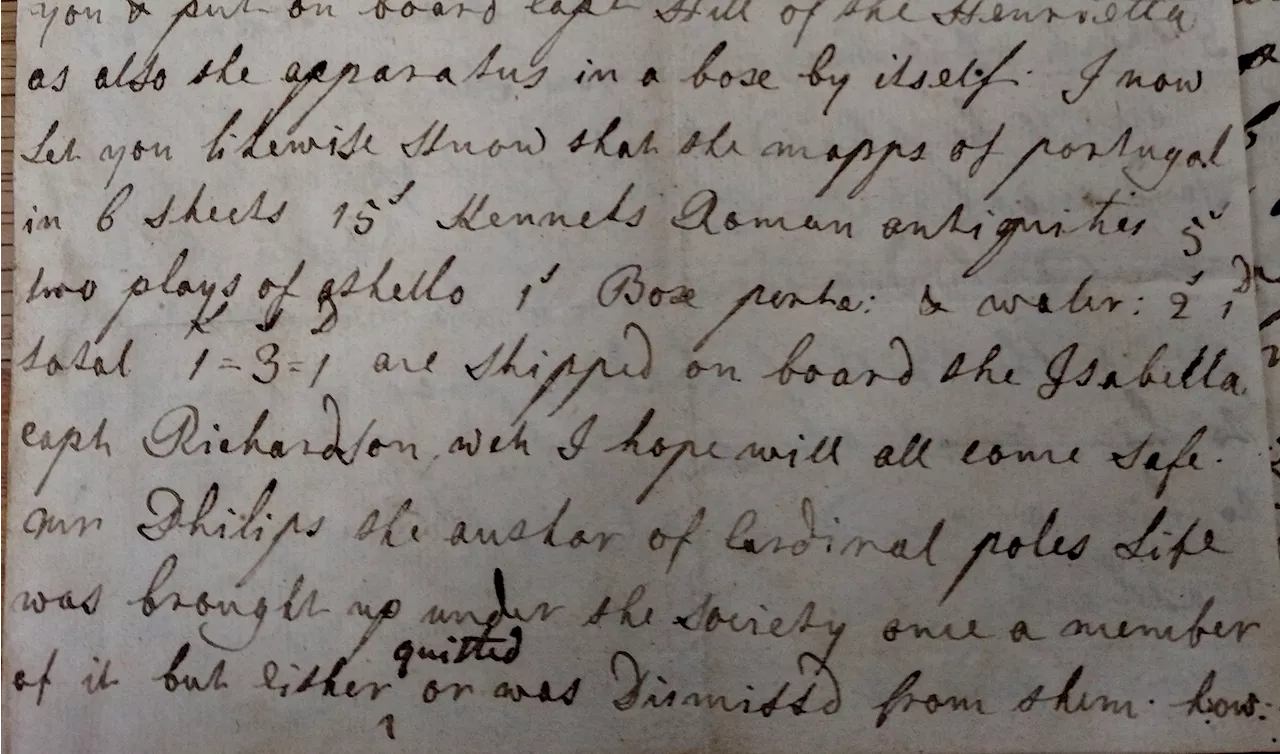 you & put on board capt Hill of the Henrietta
as also the apparatus in a boxe by itself. I now
Let you likewise Know that the mapps of portugal
in 6 sheets 15s Kennets Roman antiquities 5s
two plays of othello 1s Boxe porte: & water: 2s 1D
total 1 = 3 = 1 are shipped on board the Isabella
capt Richardson wch I hope will all come safe.
mr Philips the author of Cardinal poles Life
was brought up under the society once a member
of it but either quitted or was Dismissd from them. how: